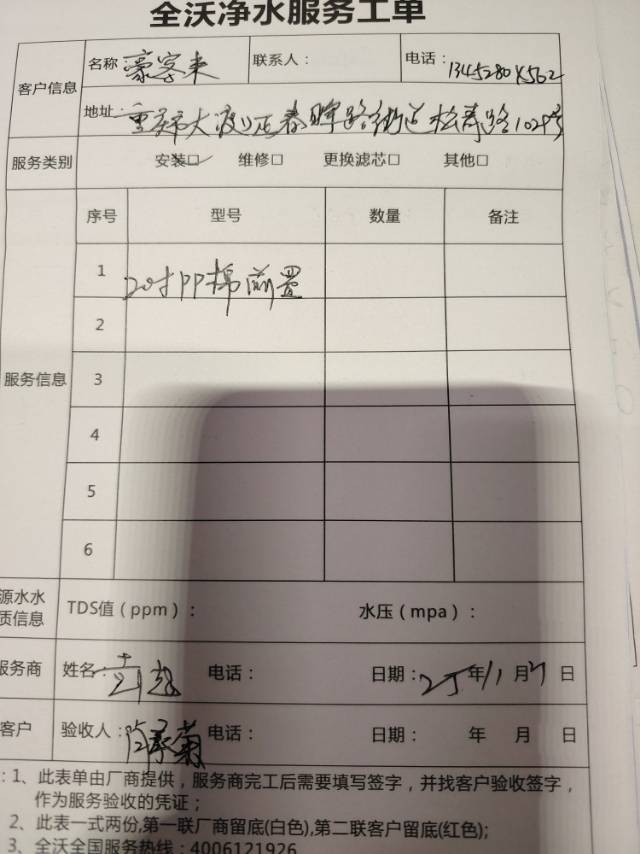 全沃净水服务工单
客户信息 名称 豪客来 联系人： 电话：
地址：重庆市大渡口区春晖路街道松青路1029号
服务类别 安装☑ 维修□ 更换滤芯□ 其他□
序号 型号 数量 备注
服务信息
1 20寸PP棉前置
2
3
4
5
6
源水水质信息 TDS值（ppm）： 水压（mpa）：
服务商 姓名： 电话： 日期：25年11月21日
客户 验收人： 电话： 日期： 年 月 日
：1、此表单由厂商提供，服务商完工后需要填写签字，并找客户验收签字，
作为服务验收的凭证；
2、此表一式两份,第一联厂商留底(白色),第二联客户留底(红色);
3、全沃全国服务热线：4006121926